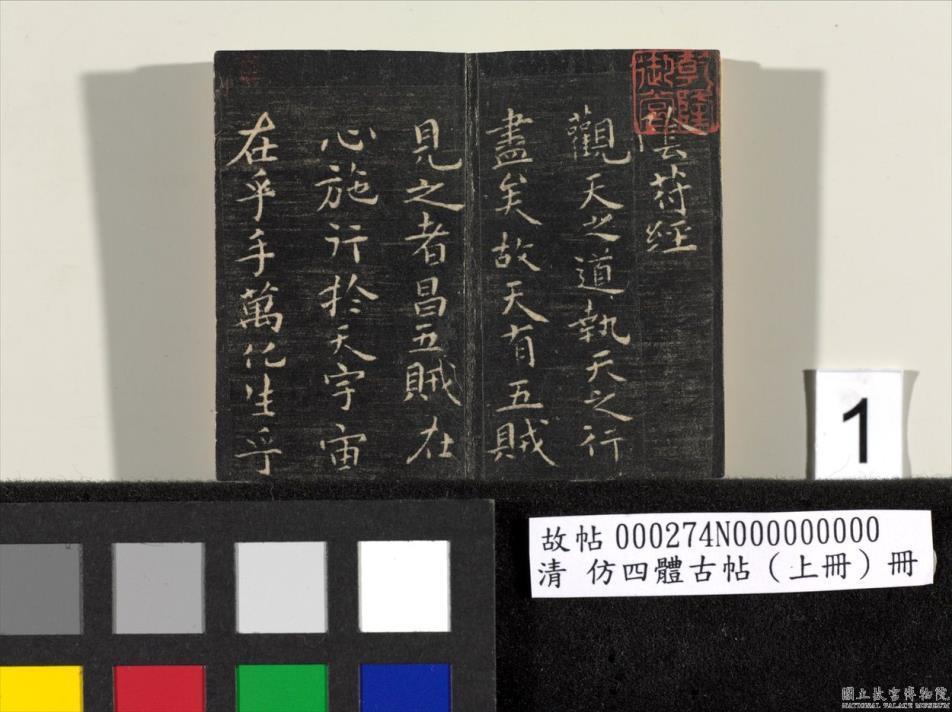 陰符經
觀天之道執天之行
盡矣故天有五賊
見之者昌五賊在
心施行於天宇宙
在乎手萬化生乎
乾隆御賞
1
故帖 000274N000000000
清 仿四體古帖（上冊）冊
國立故宮博物院
NATIONAL PALACE MUSEUM